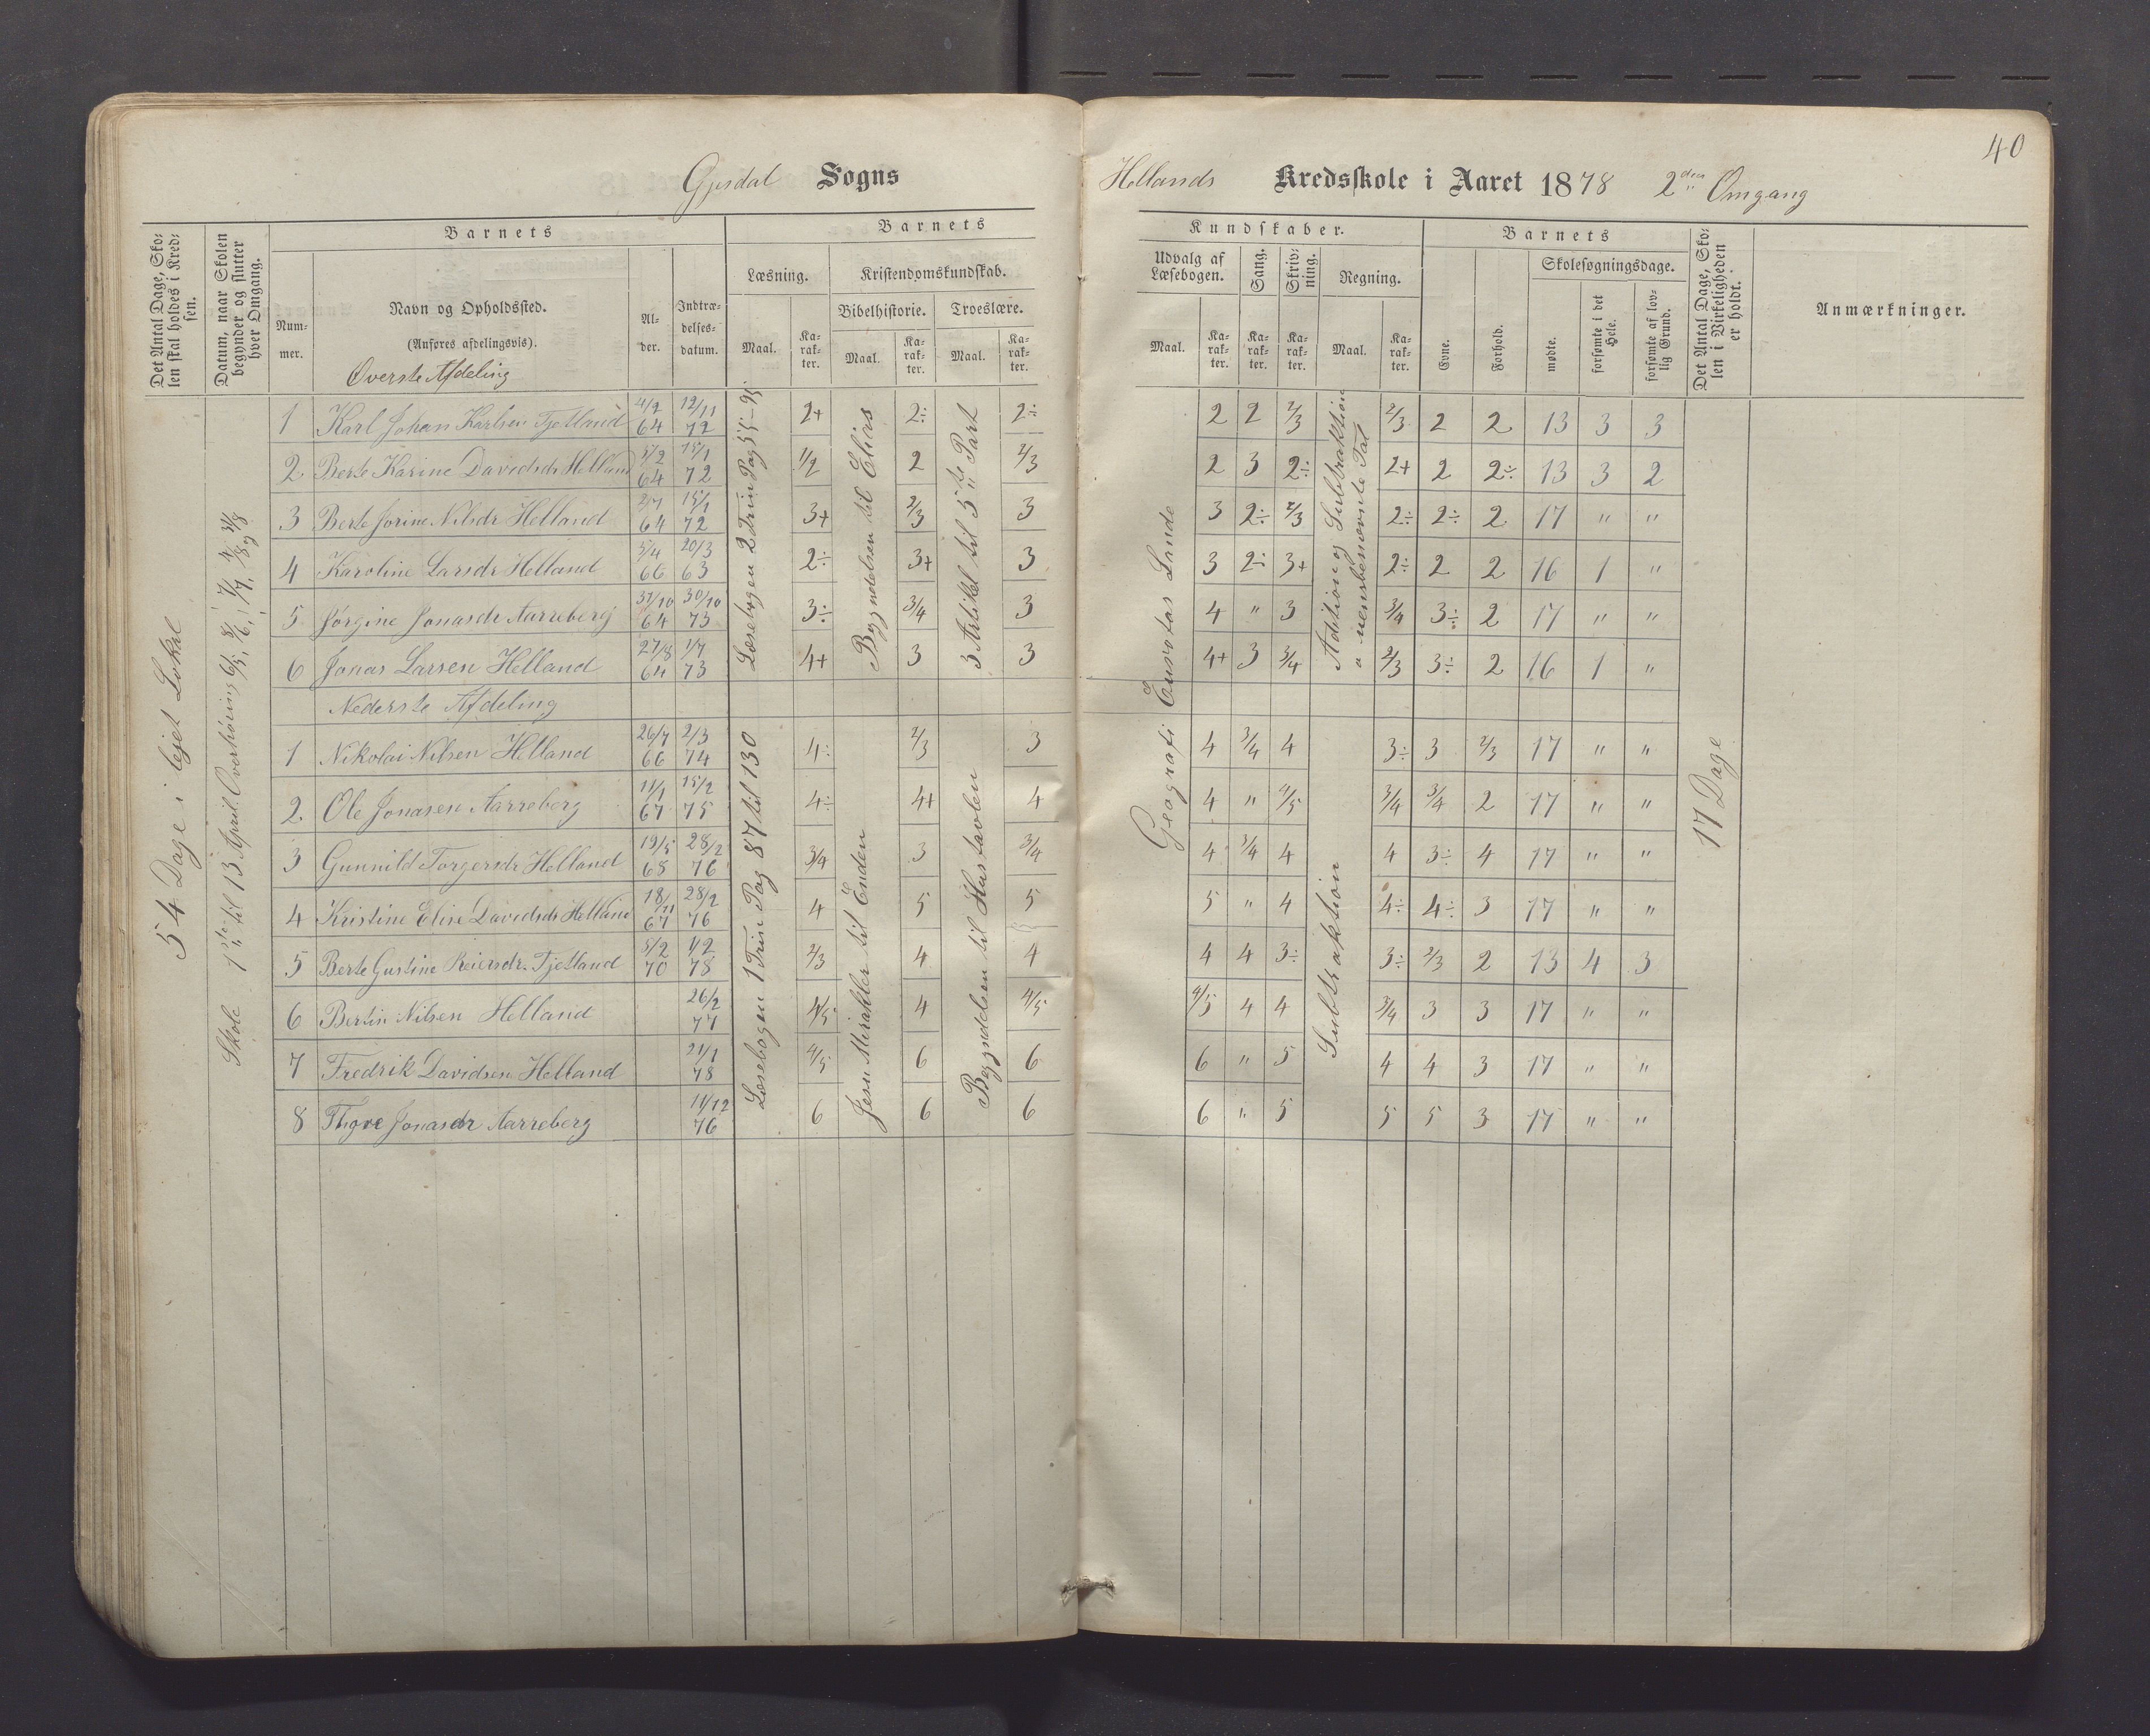 40
Gjesdal Sogns Hellands Kredsskole i Aaret 1878 2den Omgang
Det Antal Dage, Skolen skal holdes i Kredsen.
Datum, naar Skolen begynder og slutter hver Omgang.
Barnets
Num-mer.
Navn og Opholdssted.
(Anføres afdelingsvis).
Al-der.
Indtræ-delses-datum.
Barnets Kundskaber.
Læsning.
Maal. Ka-rak-ter.
Kristendomskundskab.
Bibelhistorie. Troeslære.
Maal. Ka-rak-ter. Maal. Ka-rak-ter.
Udvalg af Læsebogen.
Maal. Ka-rak-ter.
Sang.
Ka-rak-ter.
Skriv-ning.
Ka-rak-ter.
Regning.
Maal. Ka-rak-ter.
Barnets
Evne.
Forhold.
Skolesøgningsdage.
mødte.
forsømte i det Hele.
forsømte af lov-lig Grund.
Det Antal Dage, Sko-len i Virkeligheden er holdt.
Anmærkninger.
54 Dage i lejet Lokal
Skole 1ste til 13 April. Overhøring
Øverste Afdeling
Læsebogen 2 Trin Pag 55-95
Begyndelsen til Elias
3 Artikel til 5te Part
Geografi Europas Lande
Addition og Subtraktion
uensbenævnte Tal
1 Karl Johan Karlsen Tjetland 4/2 64 12/11 72 2+ 2÷ 2÷ 2 2 2/3 2/3 2 2 13 3 3
2 Berte Karine Davidsdr Helland 5/2 64 15/1 72 1/2 2 2/3 2 3 2÷ 2+ 2 2÷ 13 3 2
3 Berte Jorine Nilsdr Helland 2/7 64 15/1 72 3+ 2/3 3 3 2÷ 2/3 2÷ 2÷ 2 17 " "
4 Karoline Larsdr Helland 5/4 66 20/3 63 2÷ 3+ 3 3 2÷ 3+ 2÷ 2 2 16 1 "
5 Jørgine Jonasdr Aarreberg 31/10 64 30/10 73 3÷ 3/4 3 4 " 3 3/4 3÷ 2 17 " "
6 Jonas Larsen Helland 27/8 64 1/7 73 4+ 3 3 4+ 3 3/4 2/3 3÷ 2 16 1 "
Nederste Afdeling
Læsebogen 1 Trin Pag 87 til 130
Jesu Mirakler til Enden
Begyndelsen til Hustavlen
Subtraktion
17 Dage
1 Nikolai Nilsen Helland 26/7 66 2/3 74 4÷ 2/3 3 4 3/4 4 3÷ 3 2/3 17 " "
2 Ole Jonasen Aarreberg 11/1 67 15/2 75 4÷ 4+ 4 4 " 4/5 3/4 3/4 2 17 " "
3 Gunnild Torgersdr Helland 19/5 68 28/2 76 3/4 3 3/4 4 3/4 4 4 3÷ 4 17 " "
4 Kristine Elise Davidsdr Helland 18/11 67 28/2 76 4 5 5 5 " 4 4÷ 4÷ 3 17 " "
5 Berte Gustine Reiersdr. Tjetland 5/2 70 1/2 78 2/3 4 4 4 4 3÷ 3÷ 2/3 2 13 4 3
6 Bertin Nilsen Helland 26/2 77 4/5 4 4/5 4/5 4 4 3/4 3 3 17 " "
7 Fredrik Davidsen Helland 21/1 78 4/5 6 6 6 " 5 4 4 3 17 " "
8 Jonasdr Aarreberg 11/12 76 6 6 6 6 " 5 5 5 3 17 " "